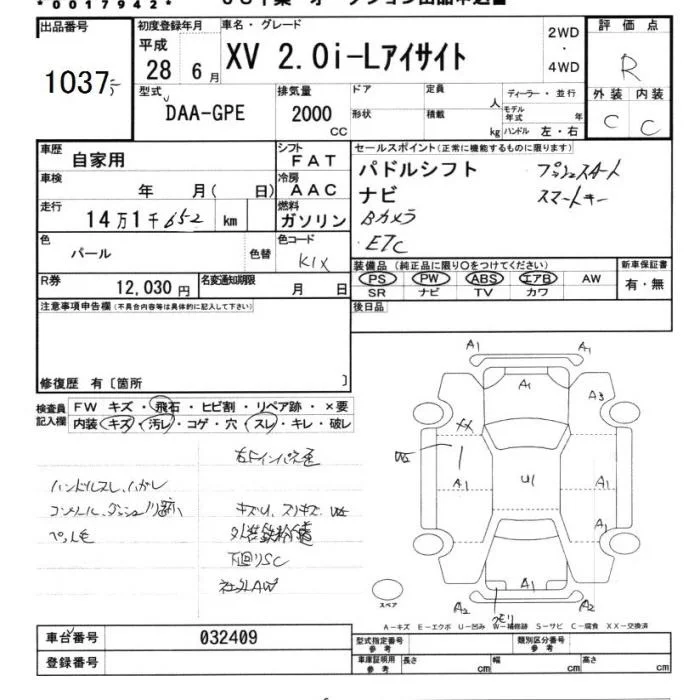 *0017942*
出品番号
1037
初度登録年月
平成
28 6月
車名・グレード
XV 2.0i-Lアイサイト
2WD
・
4WD
評価点
R
外装 内装
C C
型式
DAA-GPE
排気量
2000
CC
ドア
定員
人
形状
積載
kg
ディーラー・並行
モデル年式 年
ハンドル 左・右
車歴
自家用
シフト
FAT
車検
年 月( 日)
冷房
AAC
走行
14万1千652 km
燃料
ガソリン
色
パール
色替
色コード
K1X
R券
12,030円
名変通知期限
月 日
セールスポイント(正常に機能するものに限ります)
パドルシフト プッシュスタート
ナビ スマートキー
Bカメラ
ETC
装備品(純正品に限り○をつけてください)
PS PW ABS エアB AW
SR ナビ TV カワ
新車保証書
有・無
注意事項申告欄(不具合内容等は具体的に記入して下さい)
後日品
修復歴 有〔箇所 〕
検査員記入欄
FW キズ・飛石・ヒビ割・リペア跡・×要
内装・キズ・汚レ・コゲ・穴・スレ・キレ・破レ
ハンドルスレ、ハガレ
キズU、スリキズ
下回りSC
社外AW
A1 A1
A1
A3
XX
A1 U1 A1
A1
A1
A2 A2
スペア
A-キズ E-エクボ U-凹み W-補修跡 S-サビ C-腐食 XX-交換済
車台番号
032409
登録番号
型式指定番号
参考
類別区分番号
参考
車庫証明用
参考
長さ cm
幅 cm
高さ cm